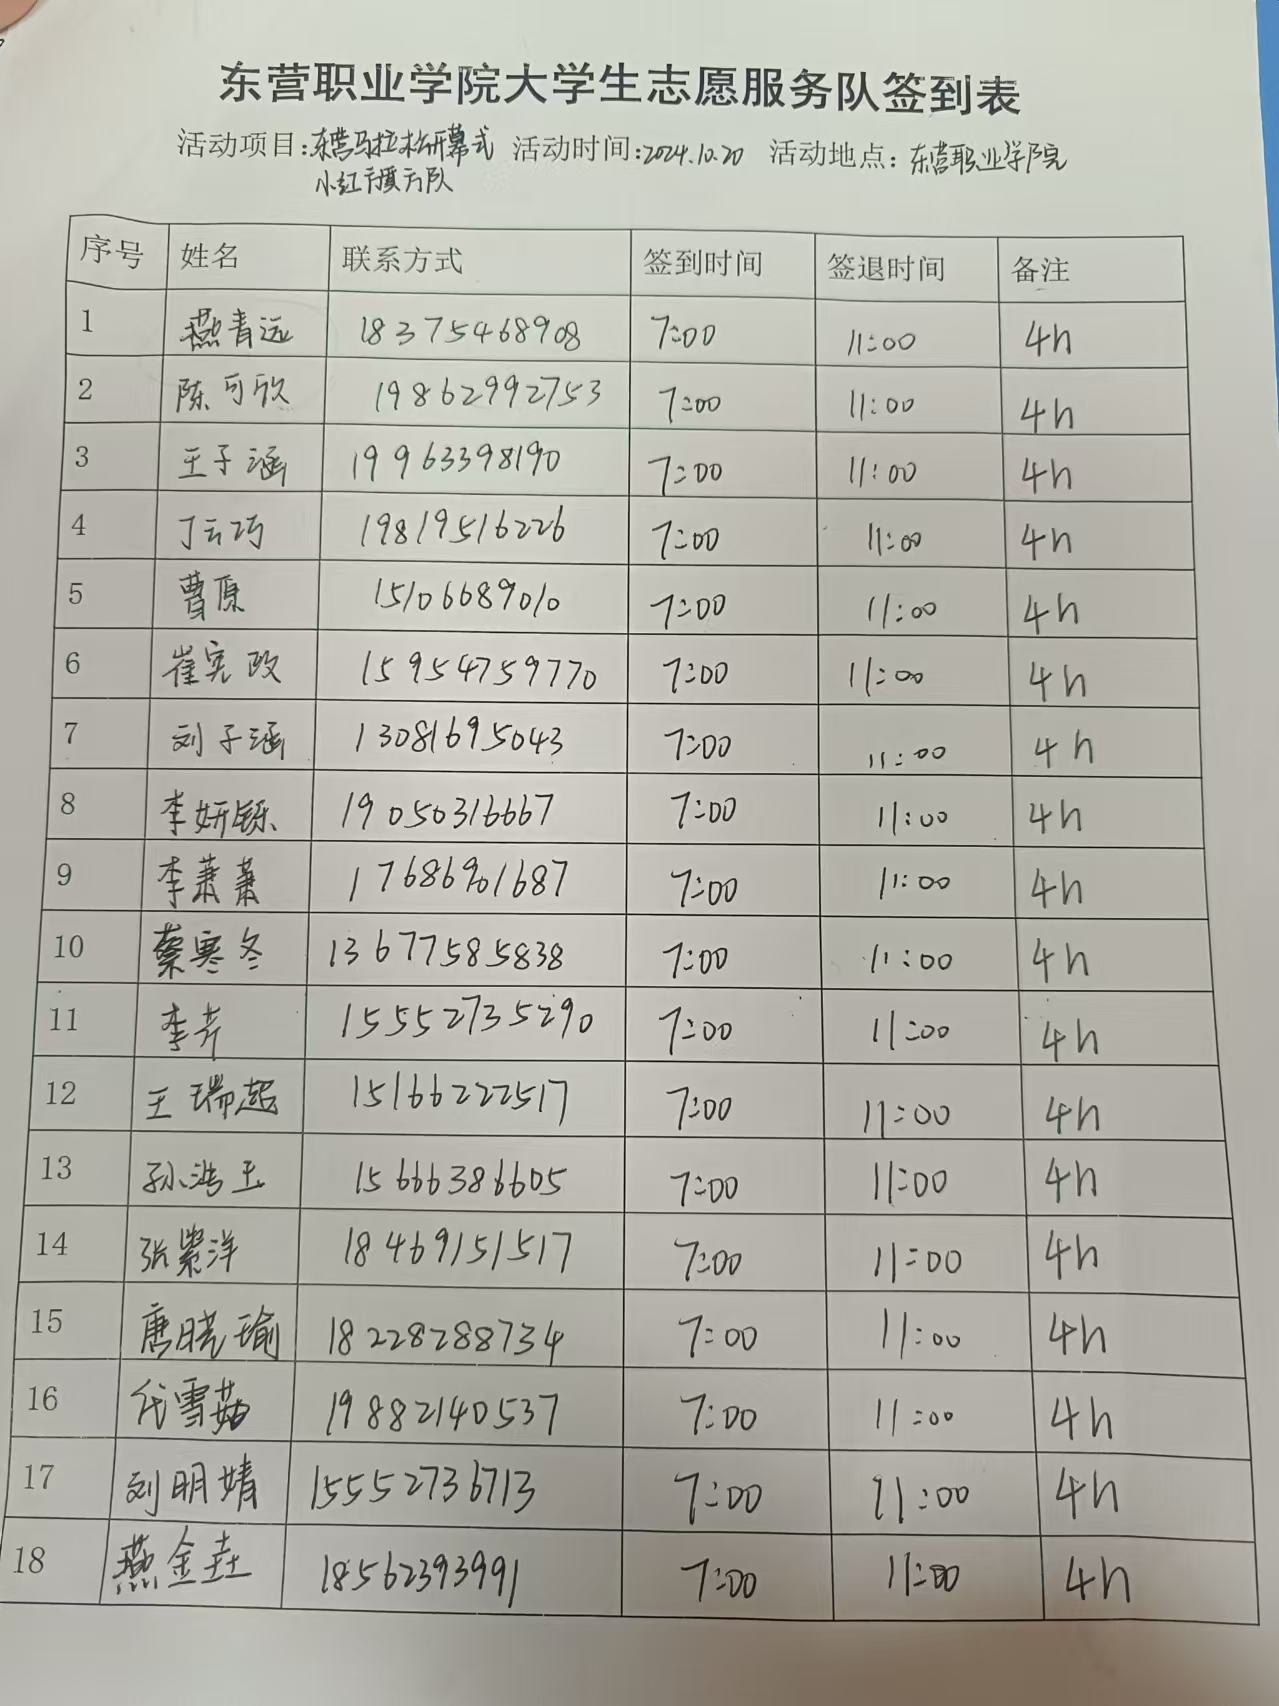 东营职业学院大学生志愿服务队签到表
活动项目:东营马拉松开幕式 活动时间:2024.10.20 活动地点:东营职业学院
小红旗方队
序号 姓名 联系方式 签到时间 签退时间 备注
1 燕青远 18375468908 7:00 11:00 4h
2 陈可欣 19862992753 7:00 11:00 4h
3 王子涵 19963398190 7:00 11:00 4h
4 丁云巧 19819516226 7:00 11:00 4h
5 曹原 15106689010 7:00 11:00 4h
6 崔宪政 15954759770 7:00 11:00 4h
7 刘子涵 13081695043 7:00 11:00 4h
8 李妍铄 19050316667 7:00 11:00 4h
9 李萧萧 17686901687 7:00 11:00 4h
10 蔡寒冬 13677585838 7:00 11:00 4h
11 李芹 15552735290 7:00 11:00 4h
12 王瑞超 15166222517 7:00 11:00 4h
13 孙浩玉 15666386605 7:00 11:00 4h
14 张紫洋 18469151517 7:00 11:00 4h
15 唐晓瑜 18228288734 7:00 11:00 4h
16 代雪茹 19882140537 7:00 11:00 4h
17 刘明婧 15552736713 7:00 11:00 4h
18 燕金垚 18562393991 7:00 11:00 4h